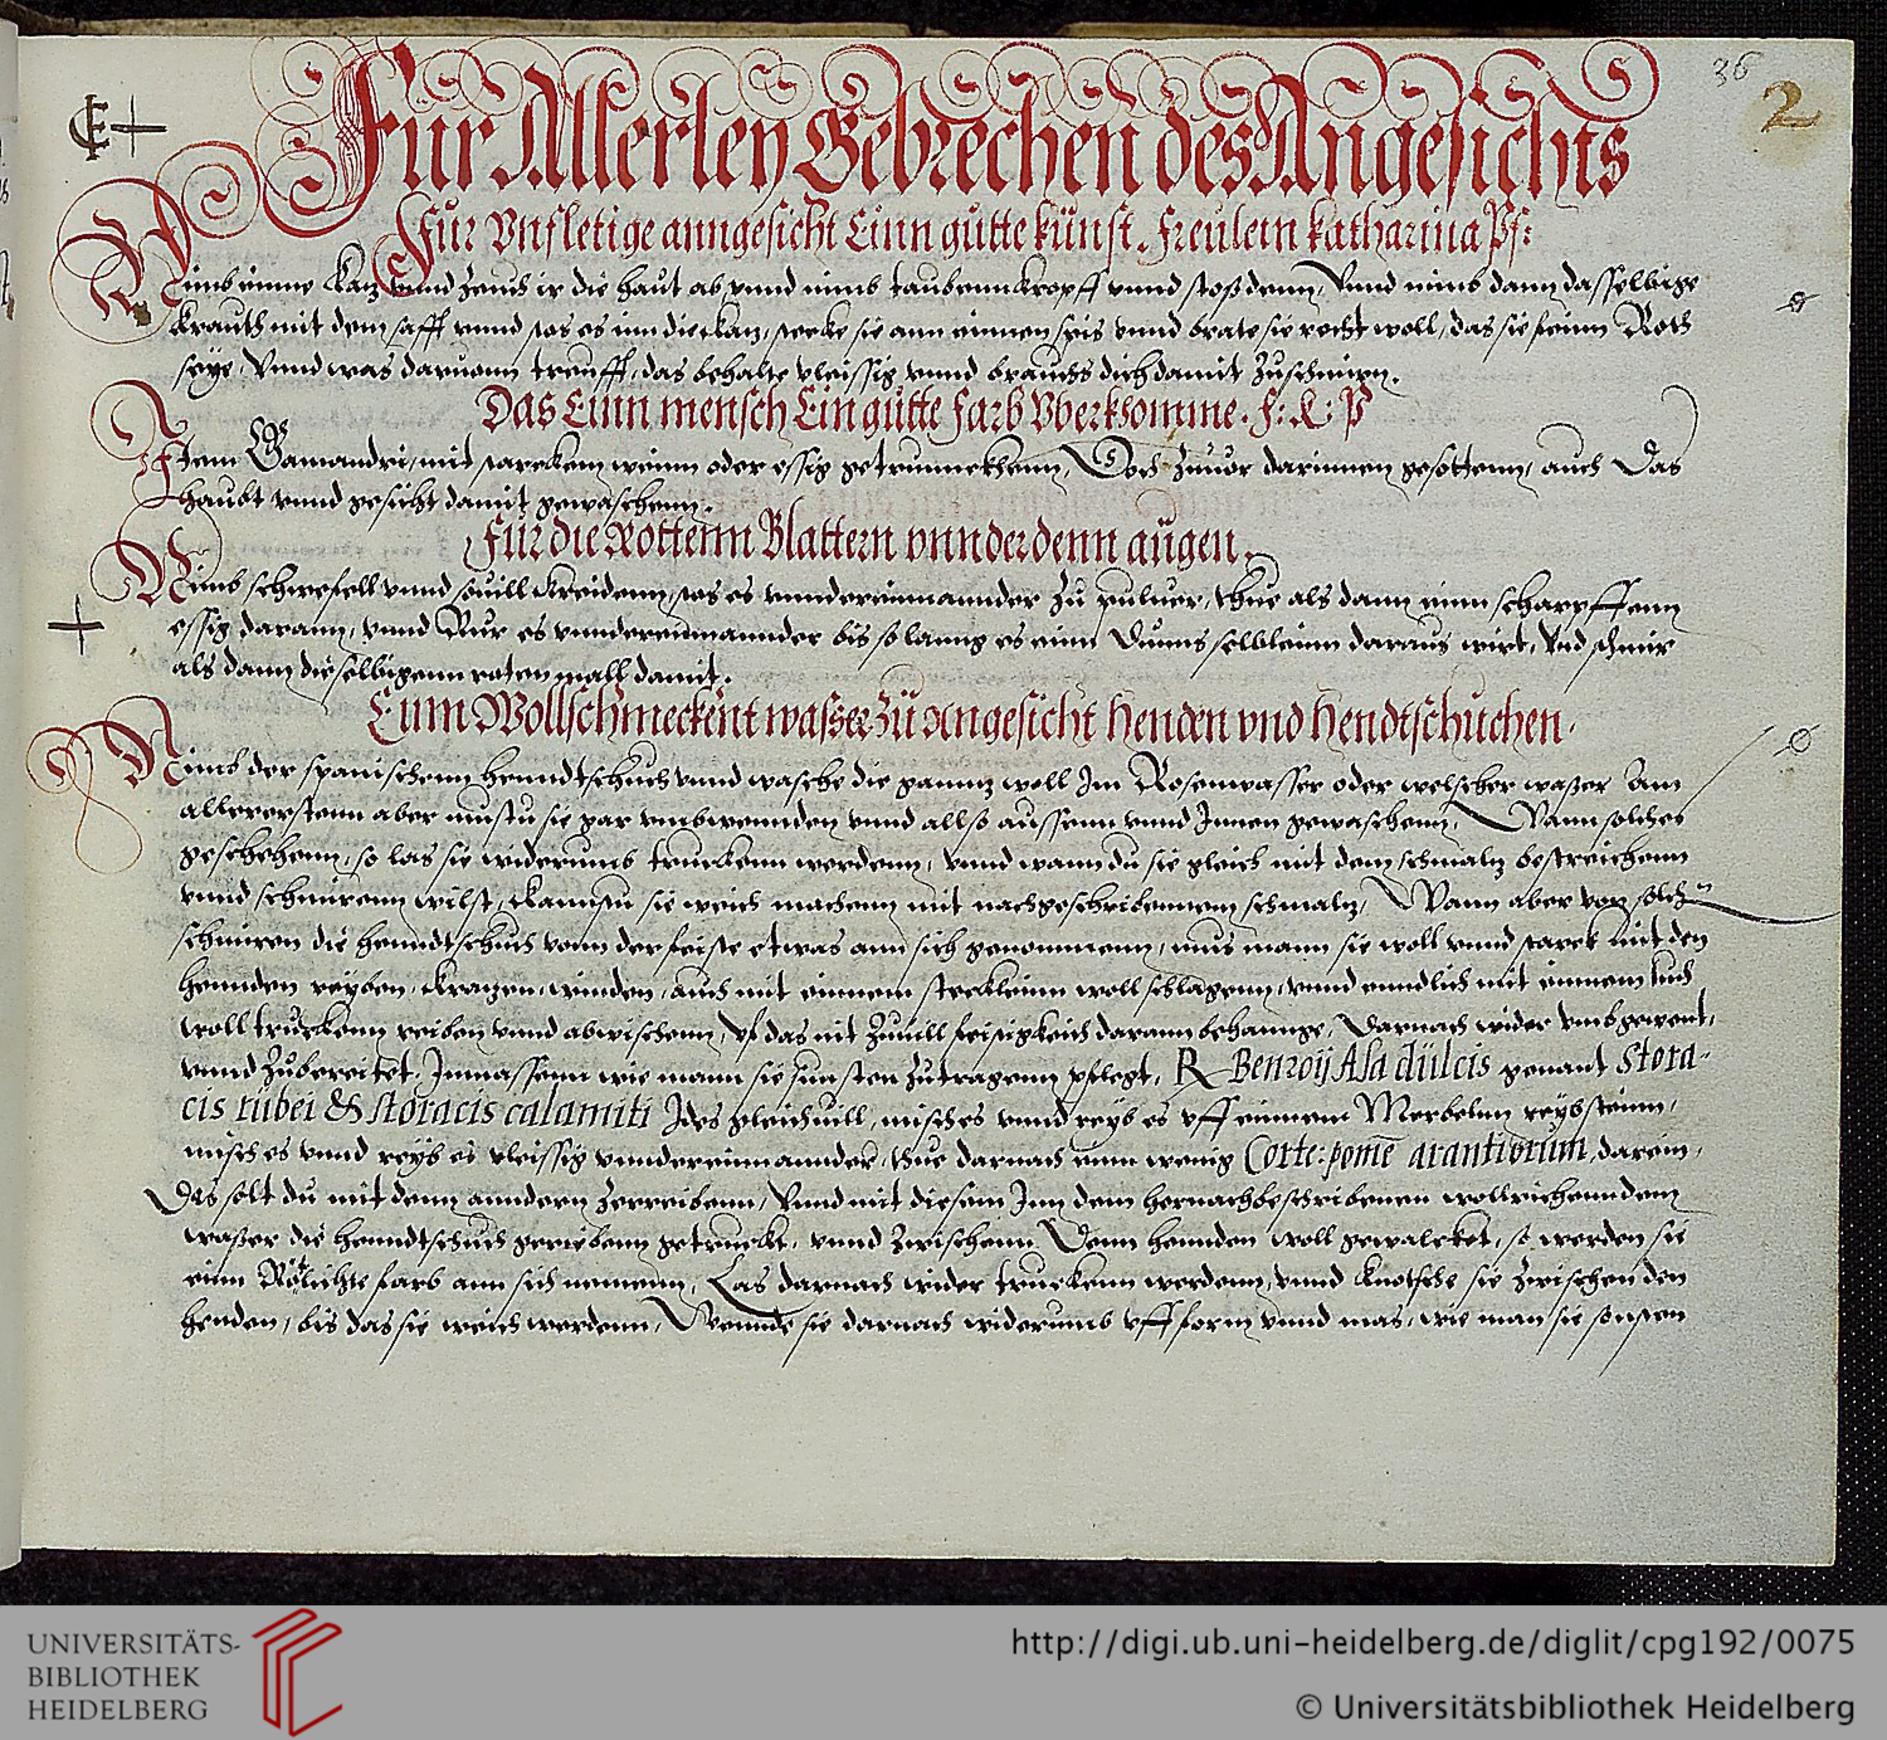 36
2
Für Allerley Gebrechen des Angesichts
Für Vnfletige anngesicht Einn gütte künst. Freülein Katharina Pf:
Nimb einne Kaz vnnd zeuch ir die haut ab, vnnd nimb taubennkropff vnnd stoß denn, Vnnd nimb dann dasselbige
krauth mit dem safft vnnd stos es inn die kaz, stecke sie ann einnen spis vnnd brate sie recht woll, das sie feinn Roth
seye, Vnnd was daruonn treufft, das behalte vleissig vnnd brauchs dich damit zuschmirn.
Das Einn mensch Ein gütte farb Vberkhomme. F: K: P
Item Gamandri, mit starckem weinn oder essig getrunnckhenn, Doch zuuor darinnen gesottenn, auch Das
haubt vnnd gesicht damit gewaschenn.
Für die Rottenn Blattern vnnder denn augen.
Nimb schwefell vnnd souill Kreidenn, stos es vnndereinnannder zu puluer, thue als dann einn scharpffenn
essig darann, vnnd Rur es vnndereinnannder bis so lanng es einn Dunns selbleinn daraus wirt, Vnd schmir
als dann dieselbigenn roten mall damit.
Einn Wollschmeckent wasser Zü Angesicht Henden vnd Hendtschuchen.
Nimb der spanischenn henndtschuch vnnd wasche die gannz woll Im Rosenwasser oder welscher waßer Am
allererstenn aber mustu sie gar vmbwennden vnnd allso aussenn vnnd Innen gewaschenn, Wann solches
geschehenn, so las sie widerumb truckenn werdenn, vnnd wann du sie gleich mit dem schmalz bestreichenn
vnnd schmirenn wilst, kannstu sie weich machenn mit nachgeschribennem schmalz, Wann aber von solchen
schmiren die henndtschuch vonn der feiste etwas ann sich genommenn, mus mann sie woll vnnd starck mit den
hennden reyben, krazen, winden, auch mit einnem stecklinn woll schlagenn, vnnd enndlich mit einnem tuch
woll truckenn reiben vnnd abwischenn, Vf das nit zuuill feistigkeich darann behannge, Darnach wider vmbgewent,
vnnd zubereitet, Inmassenn wie mann sie sunsten zutragenn pflegt, R Benzoij Asa dülcis genant Stora-
cis rübei & storacis calamiti Ides gleichuill, misch es vnnd reyb es vff einnem Merbelnn reybsteinn,
misch es vnnd reyb es vleissig vnndereinnannder, thue darnach einn wenig Corte: pome arantiorum, darein,
Das solt du mit denn anndern zerreibenn, Vnnd mit diesem Inn dem hernachbeschribenen wollriechenndem
waßer die henndtschuch geriebenn getruckt, vnnd zwischenn Denn hennden woll gewalcket, so werden sie
einn Rötlichte farb ann sich nemenn, Las darnach wider truckenn werdenn, vnnd knotsche sie zwischen den
henden, bis das sie weich werdenn, Wennde sie darnach widerumb vff form vnnd mas, wie man sie sonsten
UNIVERSITÄTS-
BIBLIOTHEK
HEIDELBERG
http://digi.ub.uni-heidelberg.de/diglit/cpg192/0075
© Universitätsbibliothek Heidelberg